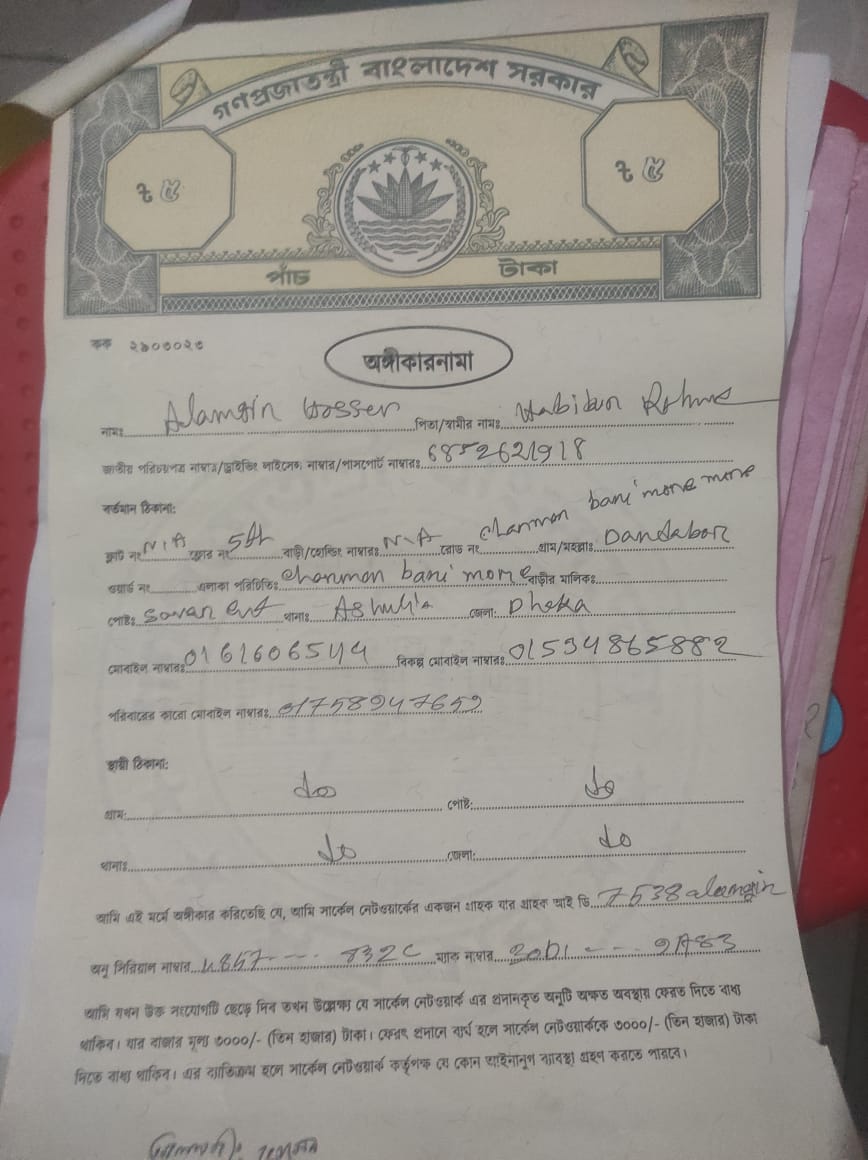 গণপ্রজাতন্ত্রী বাংলাদেশ সরকার
৳ ৫ ৳ ৫
পাঁচ টাকা
কক ২৯০৩০২৩
অঙ্গীকারনামা
নামঃ Alamgir Hossen পিতা/স্বামীর নামঃ Habibur Rahman
জাতীয় পরিচয়পত্র নাম্বার/ড্রাইভিং লাইসেন্স নাম্বার/পাসপোর্ট নাম্বারঃ 6852621918
বর্তমান ঠিকানা:
ফ্লাট নং N/A ফ্লোর নং 5th বাড়ী/হোল্ডিং নাম্বারঃ N/A রোড নং chanmon bani more more গ্রাম/মহল্লাঃ Dandabor
ওয়ার্ড নং এলাকা পরিচিতিঃ chanmon bani more বাড়ীর মালিকঃ
পোষ্টঃ Savar থানাঃ Ashulia জেলা: Dhaka
মোবাইল নাম্বারঃ 0161606544 বিকল্প মোবাইল নাম্বারঃ 01534865882
পরিবারের কারো মোবাইল নাম্বারঃ 01758947659
স্থায়ী ঠিকানা:
গ্রাম: do পোষ্ট: do
থানাঃ do জেলা: do
আমি এই মর্মে অঙ্গীকার করিতেছি যে, আমি সার্কেল নেটওয়ার্কের একজন গ্রাহক যার গ্রাহক আই ডি 7538alamgir
অনু সিরিয়াল নাম্বার 4857---- 832C ম্যাক নাম্বার 20D1 ---- 9A83
আমি যখন উক্ত সংযোগটি ছেড়ে দিব তখন উল্লেক্ষ্য যে সার্কেল নেটওয়ার্ক এর প্রদানকৃত অনুটি অক্ষত অবস্থায় ফেরত দিতে বাধ্য
থাকিব। যার বাজার মূল্য ৩০০০/- (তিন হাজার) টাকা। ফেরৎ প্রদানে ব্যর্থ হলে সার্কেল নেটওয়ার্ককে ৩০০০/- (তিন হাজার) টাকা
দিতে বাধ্য থাকিব। এর ব্যতিক্রম হলে সার্কেল নেটওয়ার্ক কর্তৃপক্ষ যে কোন আইনানুগ ব্যবস্থা গ্রহণ করতে পারবে।